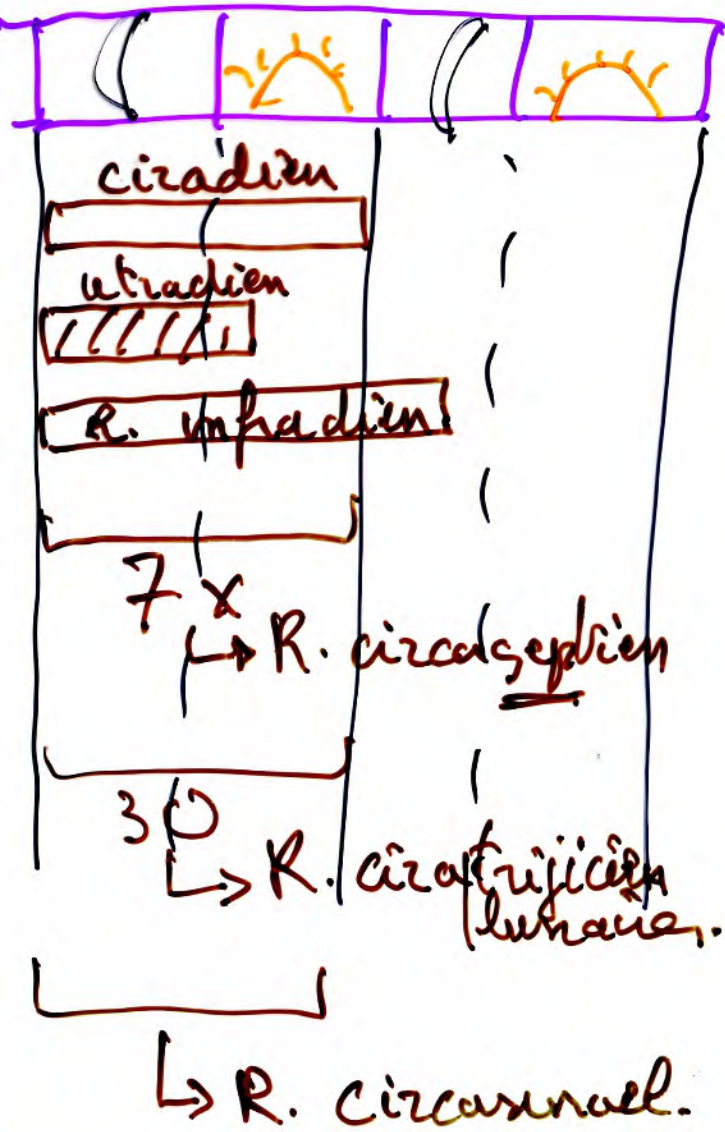 ciradien
utradien
R. infradien
7 x
R. circaseptien
30
R. ciratrijicien
lunaire.
R. circannuel.